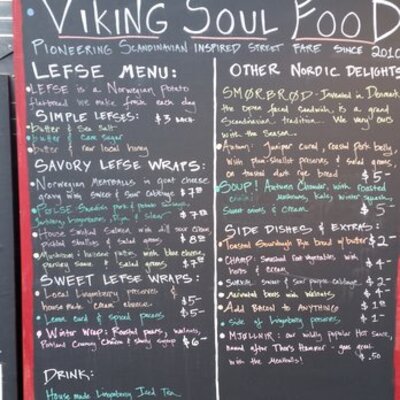 VIKING SOUL FOOD
PIONEERING SCANDINAVIAN INSPIRED STREET FARE SINCE 2010
LEFSE MENU:
LEFSE is a Norwegian Potato
flatbread we make fresh each day
SIMPLE LEFSES: $3 each
butter & Sea Salt
butter & Cane Sugar
butter & raw local honey
SAVORY LEFSE WRAPS:
Norwegian MEATBALLS in goat cheese
gravy with sweet & sour Cabbage $7
PØLSE Swedish pork & potato Sausage,
Lingonberries, Dijon & slaw $7
House Smoked Salmon with dill sour cream,
pickled shallots & salad greens $8
Mushroom & hazelnut patties with blue cheese,
parsley sauce & salad greens $7
SWEET LEFSE WRAPS:
Local Lingonberry preserves &
house made cream cheese $5-
Lemon curd & spiced pecans $5-
Winter Wrap: Roasted pears, walnuts,
Portland Creamery Chèvre & sherry syrup $6-
DRINK:
House made Lingonberry Iced Tea
OTHER NORDIC DELIGHTS
SMØRBRØD - Invented in Denmark
the open faced Sandwich, is a grand
Scandinavian tradition. We vary ours
with the Season.
Autumn: Juniper cured, roast pork belly,
with plum-shallot preserves & salad greens,
on toasted dark rye bread $5-
SOUP! Autumn Chowder, with roasted
Mushrooms, Kale, winter squash,
Sweet onions & cream $5
SIDE DISHES & EXTRAS:
Toasted Sourdough Rye bread w/butter $2-
CHAMP: smashed Root Vegetables with
herbs & cream $4-
SURKÅL sweet & sour purple cabbage $2-
Marinated beets with Walnuts $4-
Add BACON to ANYTHING! $1
Side of Lingonberry preserves $1-
MJØLLNIR: our wildly popular Hot sauce,
named after Thor's Hammer - goes great
with the Meatballs! $.50